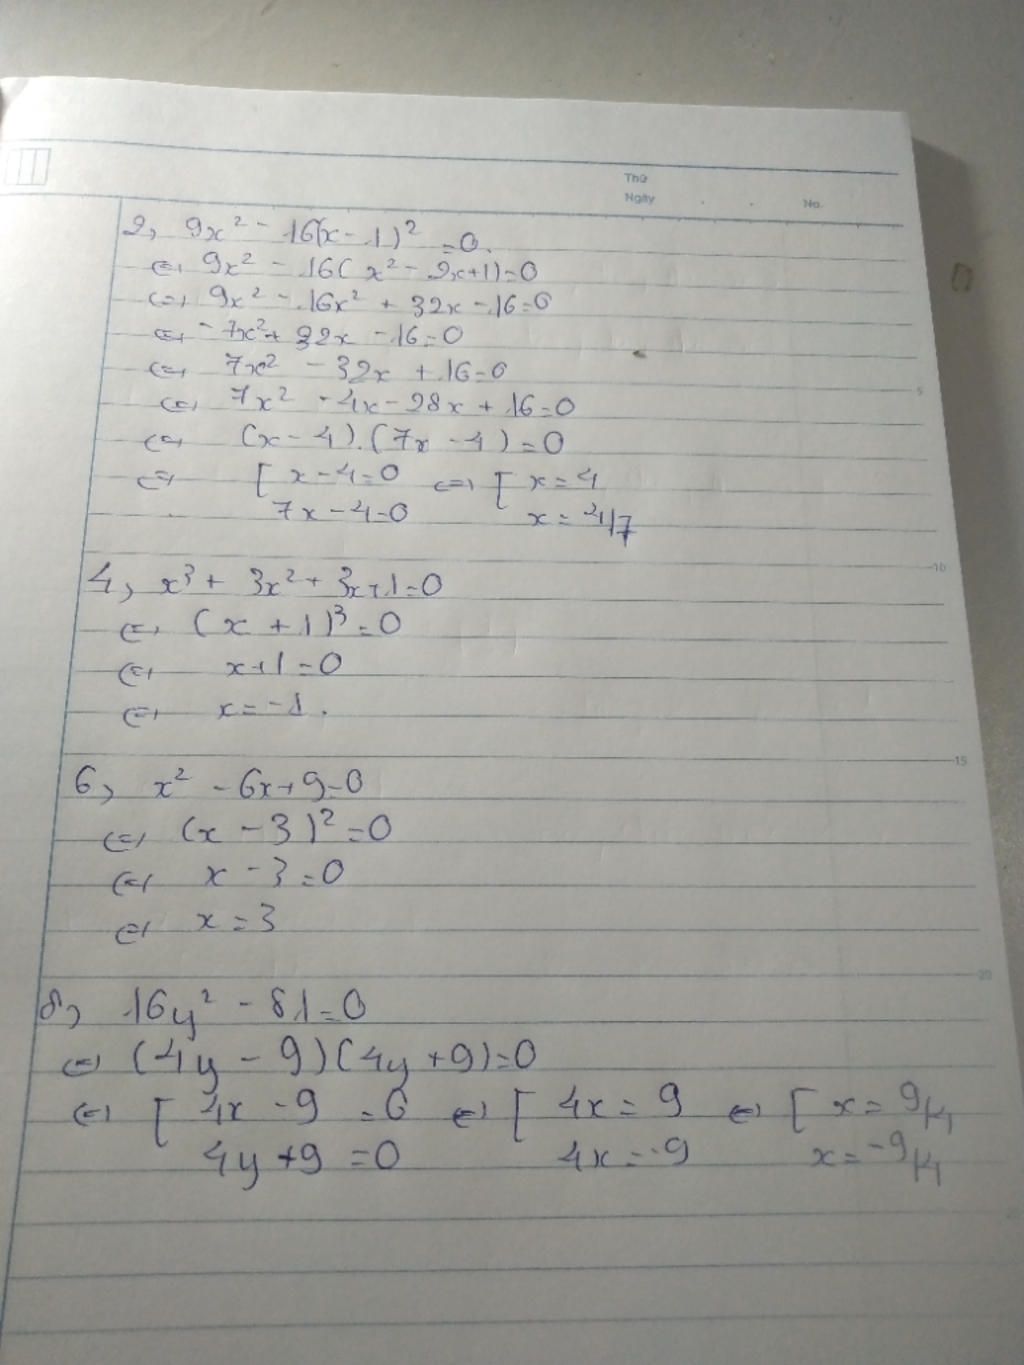 Thứ
Ngày . . No.
2, 9x² - 16(x - 1)² = 0.
<=> 9x² - 16(x² - 2x+1)=0
<=> 9x² - 16x² + 32x - 16=0
<=> -7x² + 32x - 16=0
<=> 7x² - 32x + 16=0
<=> 7x² - 4x - 28x + 16=0
<=> (x - 4).(7x - 4) = 0
<=> [ x - 4=0 <=> [ x = 4
7x - 4=0 x = 4/7
4, x³ + 3x² + 3x+1=0
<=> (x + 1)³ = 0
<=> x+1=0
<=> x = -1.
6, x² - 6x+9=0
<=> (x - 3)² = 0
<=> x - 3 = 0
<=> x = 3
8, 16y² - 81=0
<=> (4y - 9)(4y +9)=0
<=> [ 4x - 9 = 0 <=> [ 4x = 9 <=> [ x = 9/4
4y +9 = 0 4x = -9 x = -9/4
5
10
15
20